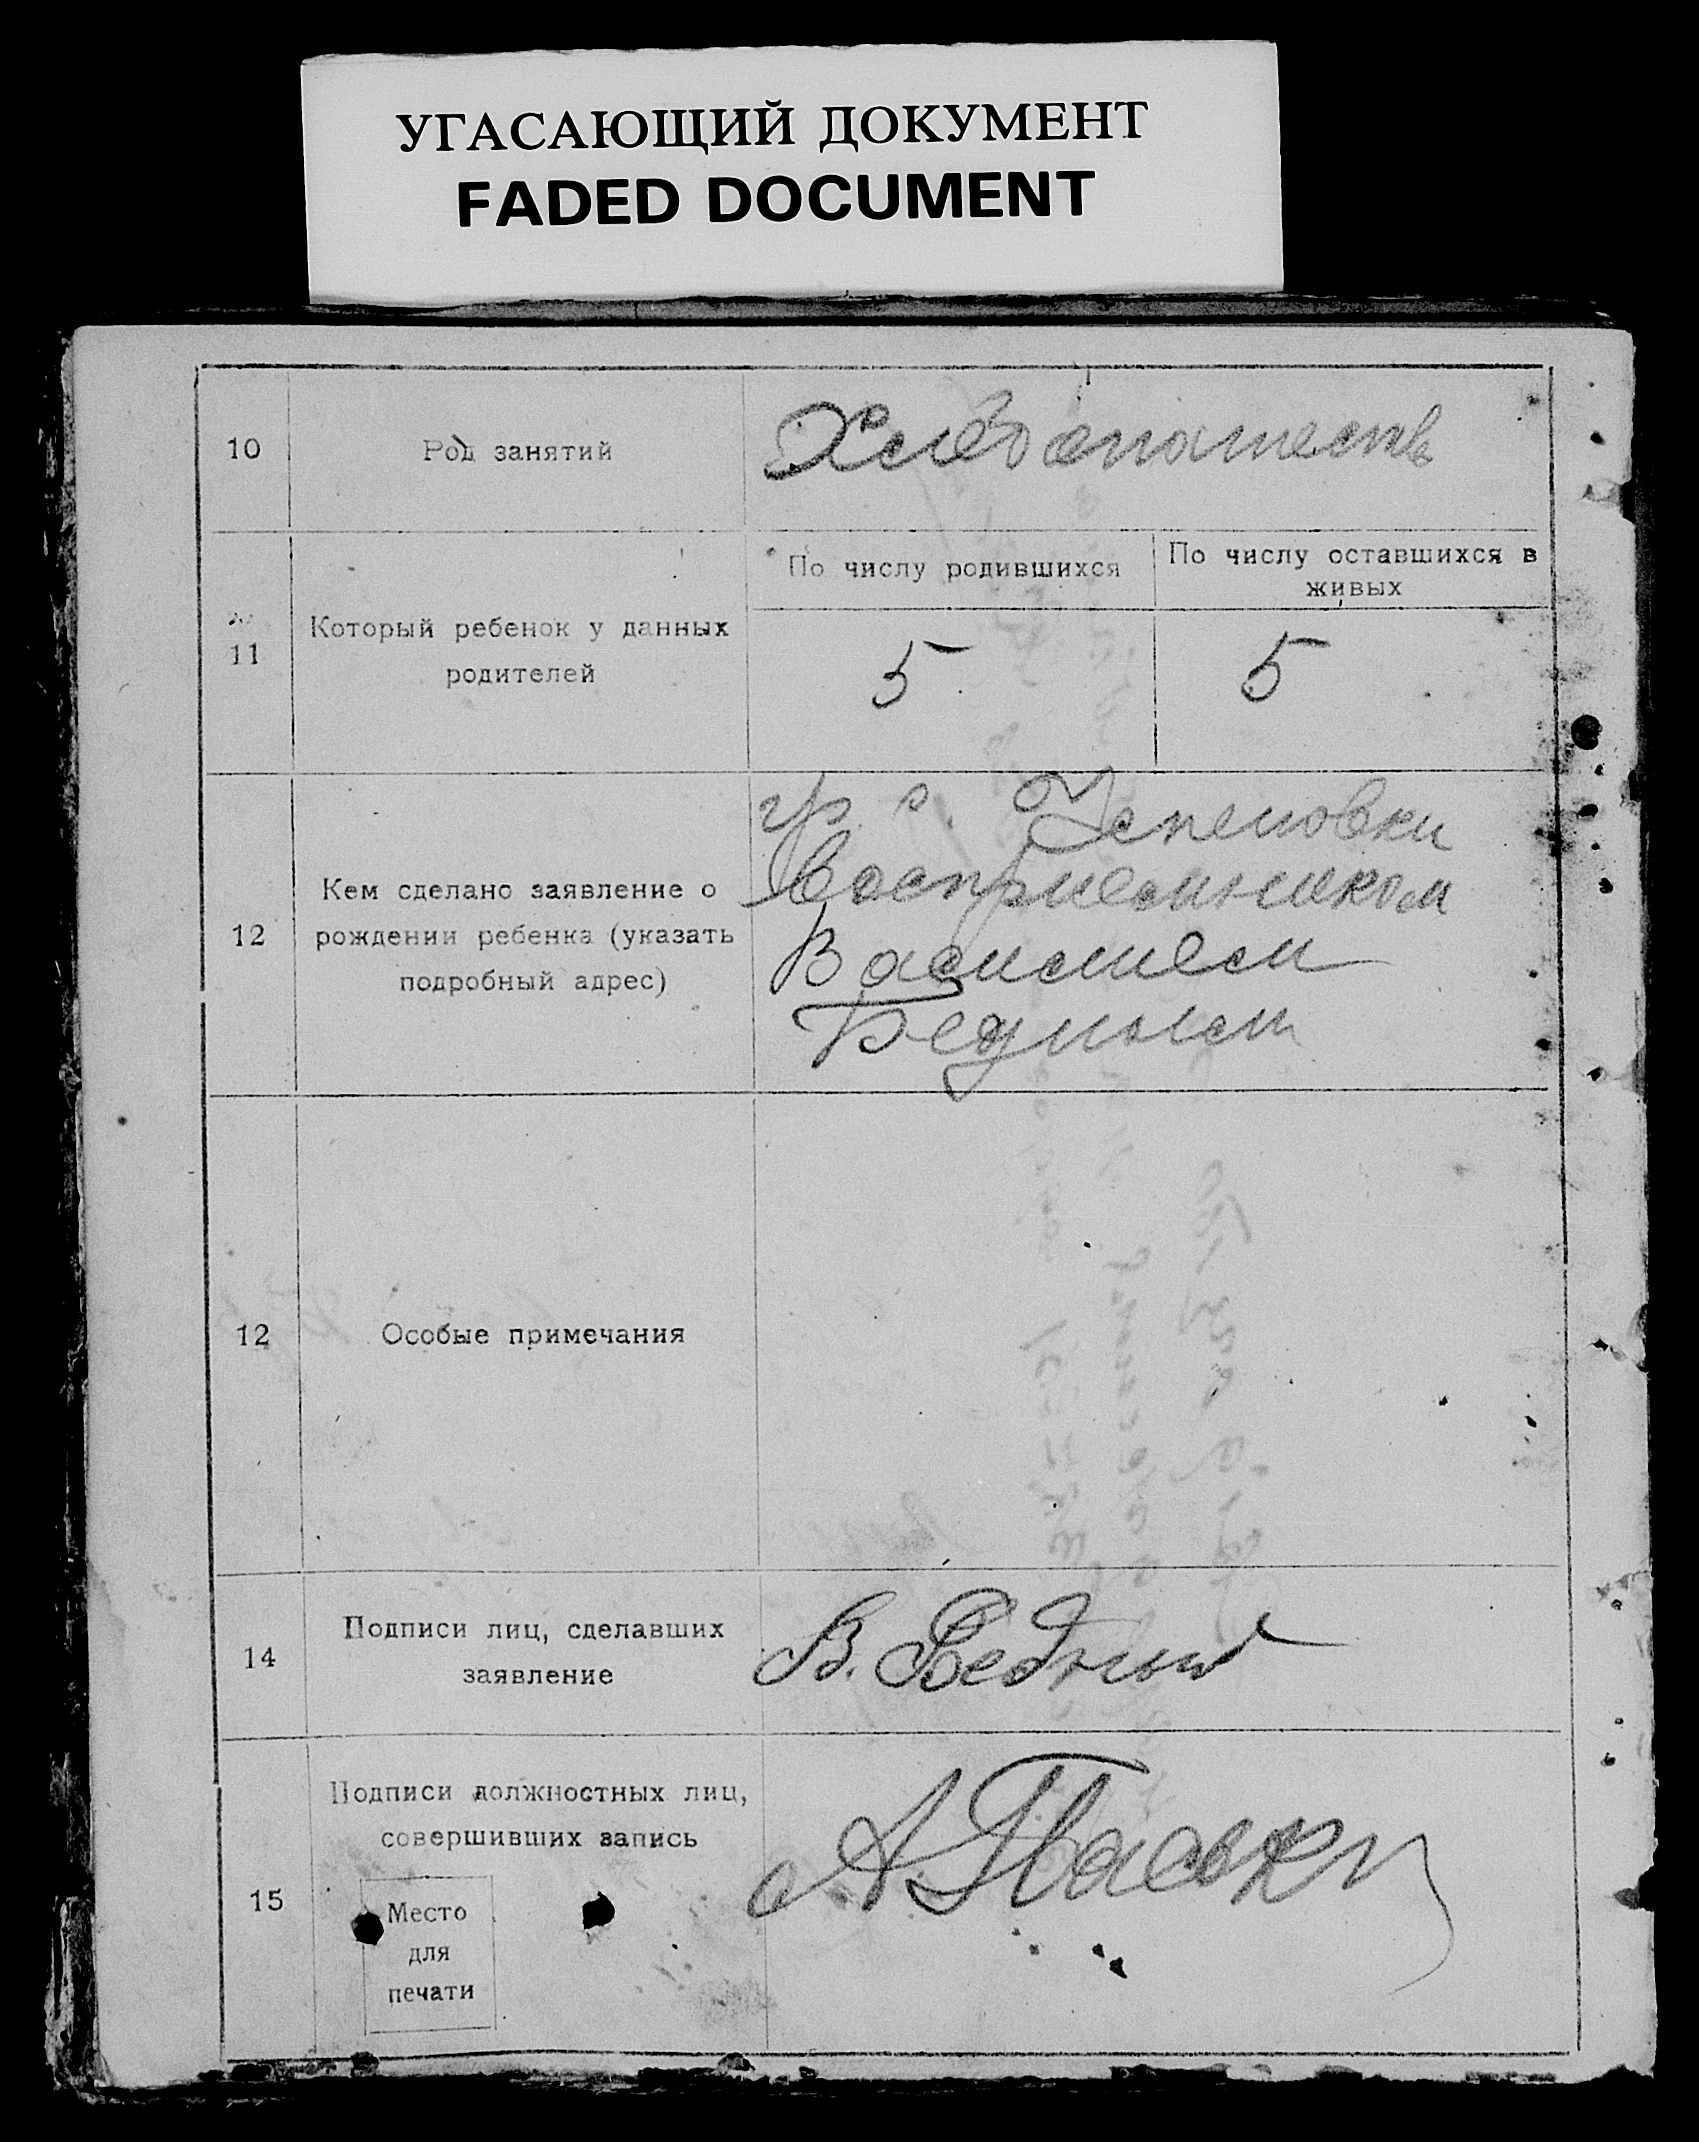 УГАСАЮЩИЙ ДОКУМЕНТ
FADED DOCUMENT
10
Род занятий
Хлебопашеств
11
Который ребенок у данных
родителей
По числу родившихся
По числу оставшихся в
живых
5
5
12
Кем сделано заявление о
рождении ребенка (указать
подробный адрес)
гр. с. Успеновки
Восприемником
Василием
Бедным
12
Особые примечания
14
Подписи лиц, сделавших
заявление
В. Бедный
15
Подписи должностных лиц,
совершивших запись
Место
для
печати
А.